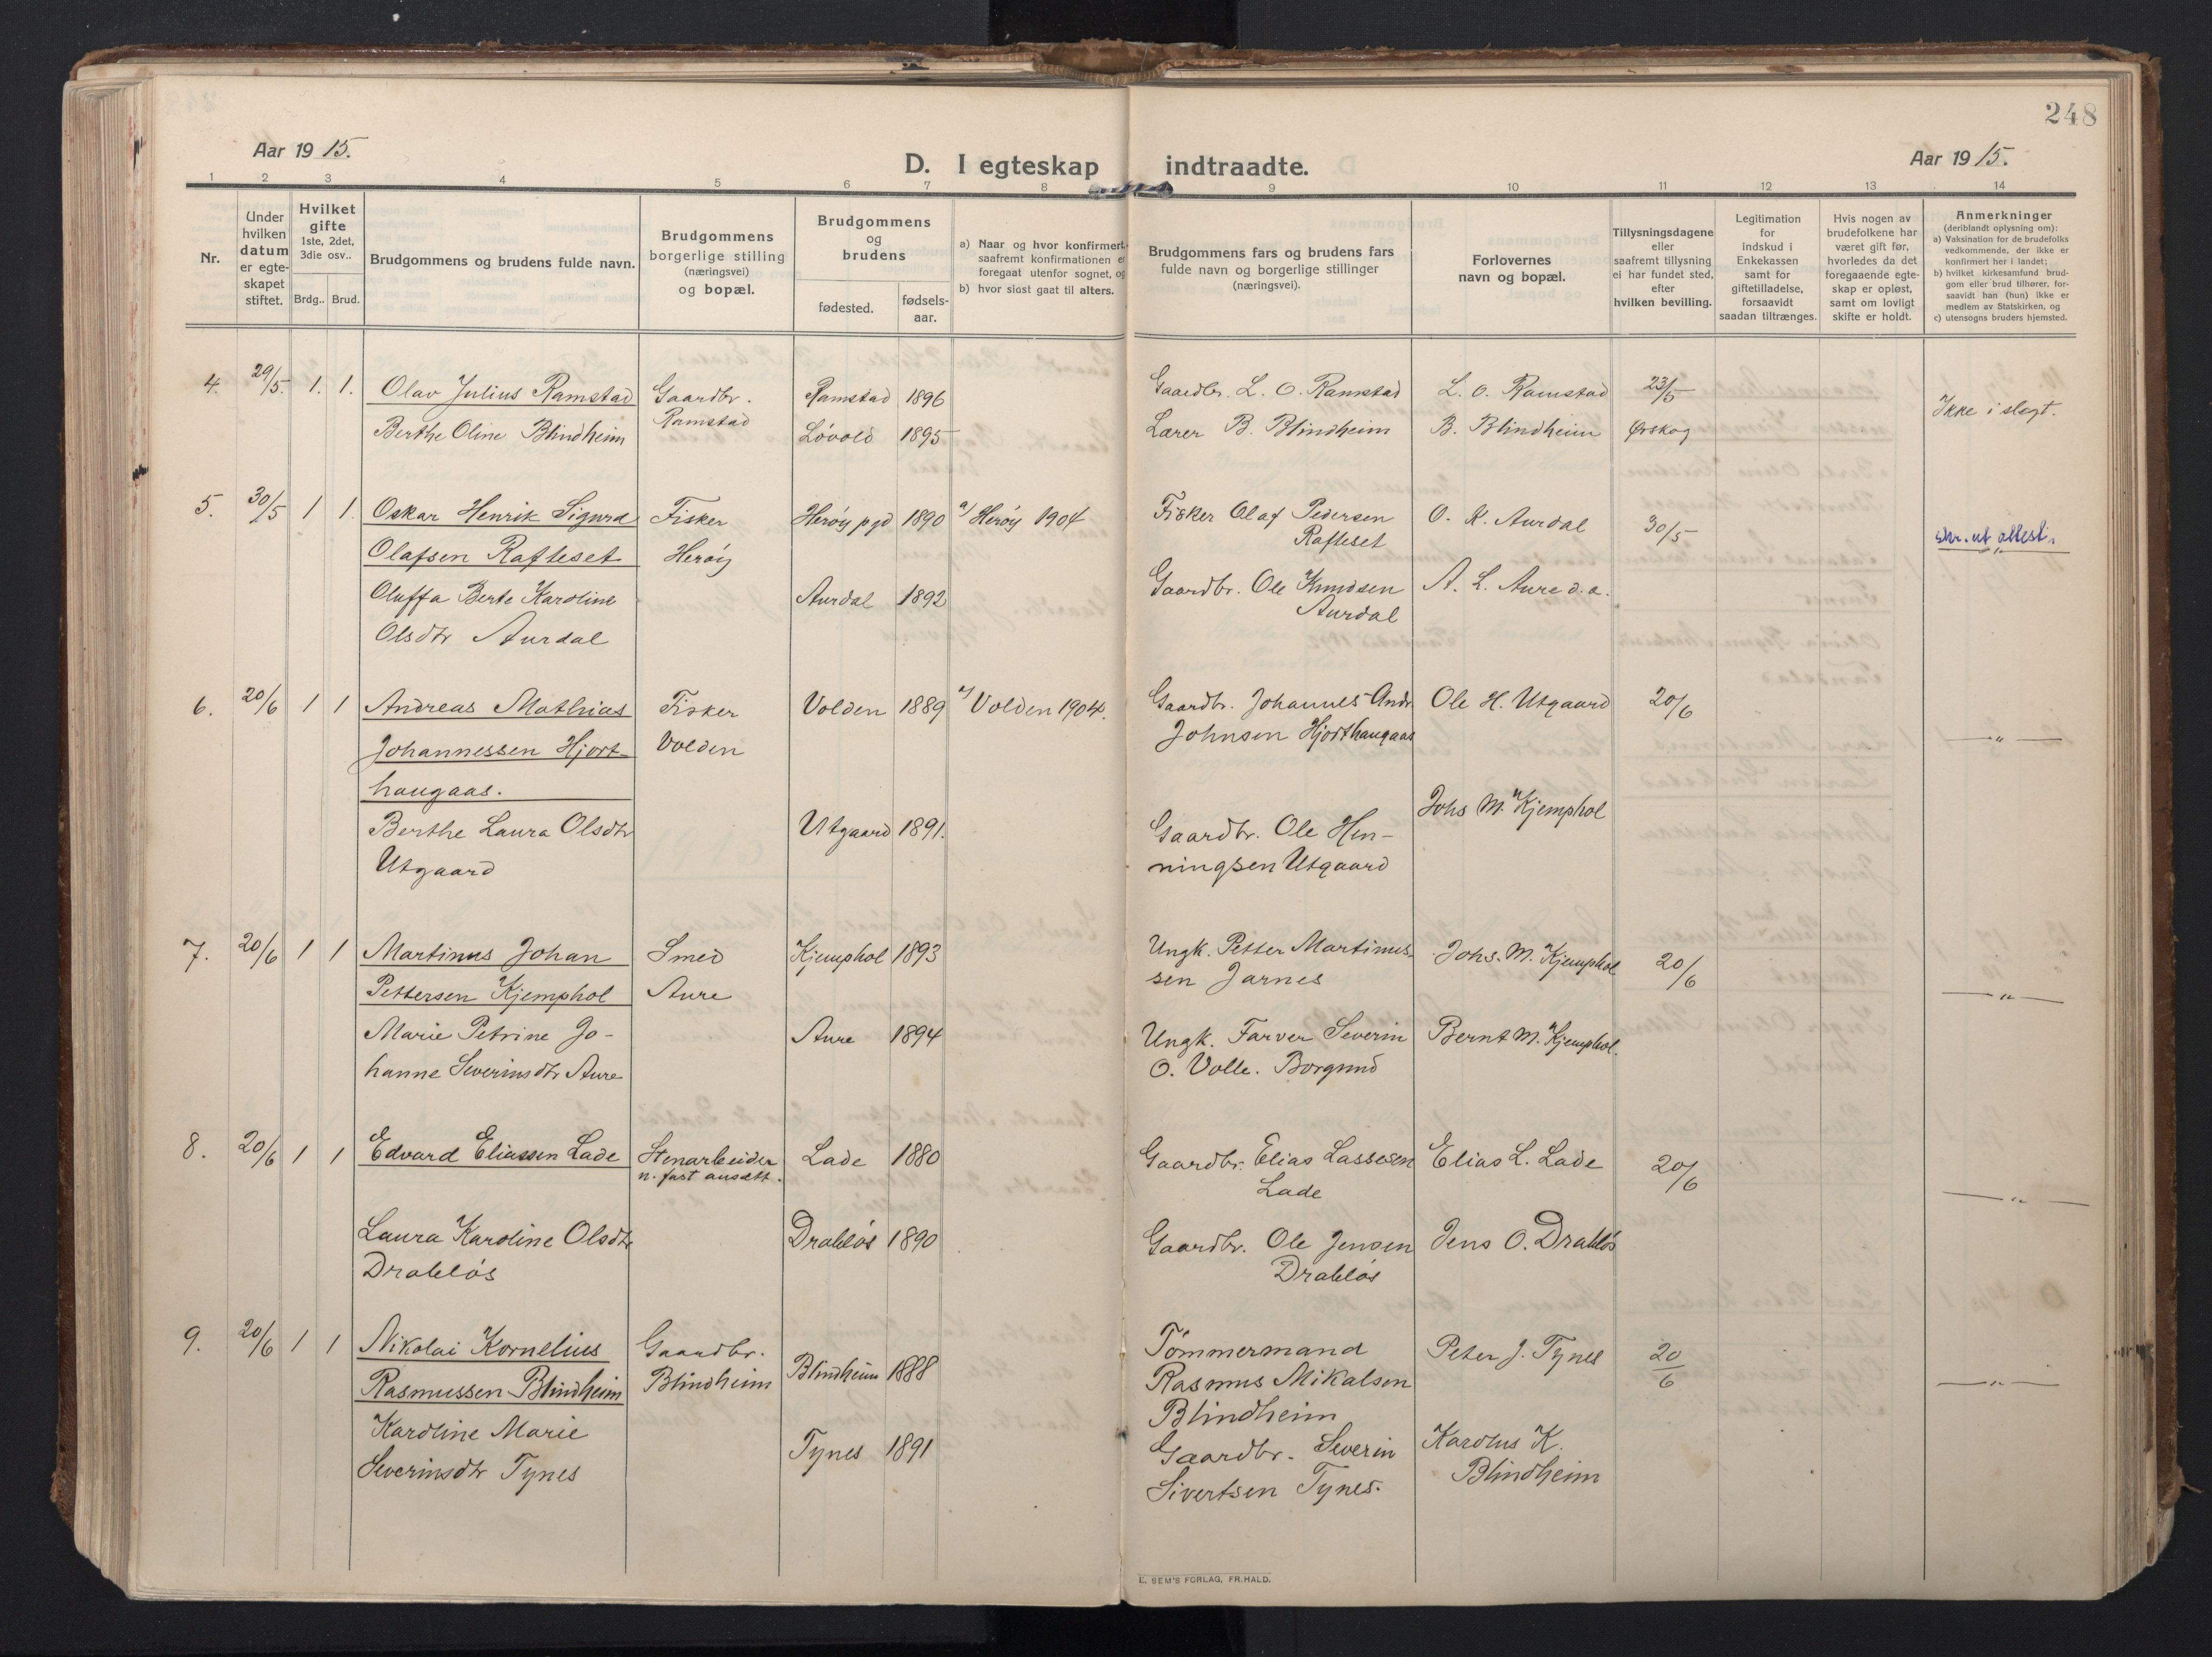 248
Aar 1915.
D. I egteskap indtraadte.
Aar 1915.
1 2 3 4 5 6 7 8 9 10 11 12 13 14
Nr.
Under hvilken datum er egte-skapet stiftet.
Hvilket gifte 1ste, 2det, 3die osv..
Brdg.. Brud.
Brudgommens og brudens fulde navn.
Brudgommens borgerlige stilling (næringsvei) og bopæl.
Brudgommens og brudens
fødested.
fødsels-aar.
a) Naar og hvor konfirmert, saafremt konfirmationen er foregaat utenfor sognet, og
b) hvor sidst gaat til alters.
Brudgommens fars og brudens fars fulde navn og borgerlige stillinger (næringsvei).
Forlovernes navn og bopæl.
Tillysningsdagene eller saafremt tillysning ei har fundet sted, efter hvilken bevilling.
Legitimation for indskud i Enkekassen samt for giftetilladelse, forsaavidt saadan tiltrænges.
Hvis nogen av brudefolkene har været gift før, hvorledes da det foregaaende egte-skap er opløst, samt om lovligt skifte er holdt.
Anmerkninger
(deriblandt oplysning om):
a) Vaksination for de brudefolks vedkommende, der ikke er konfirmert her i landet;
b) hvilket kirkesamfund brud-gom eller brud tilhører, for-saavidt han (hun) ikke er medlem av Statskirken, og
c) utensogns bruders hjemsted.
4. 29/5. 1. 1. Olav Julius Ramstad Gaardbr. Ramstad 1896 Gaardbr. L. O. Ramstad L. O. Ramstad 23/5
Ramstad
Ikke i slegt.
Berthe Oline Blindheim Løvold 1895 Lærer B. Blindheim B. Blindheim Ørskog
5. 30/5 1 1. Oskar Henrik Sigurd Fisker Herøy pgd 1890 a) Herøy 1904 Fisker Olaf Pedersen O. K. Aurdal 30/5
Rafteset
skr. ut attest.
"
Olafsen Rafteset Herøy
Oluffa Berte Karoline Aurdal 1892 Gaardbr. Ole Knudsen A. L. Aure d. a.
Aurdal
Olsdtr Aurdal
6. 20/6 1 1 Andreas Mathias Fisker Volden 1889 a) Volden 1904. Gaardbr. Johannes Andr. Ole H. Utgaard 20/6
Johannessen Hjort- Volden Johnsen Hjorthaugaas — " —
haugaas.
Johs M. Kjemphol
Berthe Laura Olsdtr Utgaard 1891. Gaardbr. Ole Hen-
Utgaard ningsen Utgaard
7. 20/6 1 1 Martinus Johan Smed Kjemphol 1893 Ungk. Petter Martinus- Johs. M. Kjemphol 20/6
Pettersen Kjemphol Aure sen Jarnes — " —
Marie Petrine Jo- Aure 1894 Ungk. Farver Severin Bernt M. Kjemphol.
hanne Severinsdtr Aure O. Volle. Borgund
8. 20/6 1 1 Edvard Eliassen Lade Stenarbeider Lade 1880 Gaardbr. Elias Lassesen Elias L. Lade 20/6
n. fast ansatt. Lade — " —
Laura Karoline Olsdtr Drabløs 1890 Gaardbr. Ole Jensen Jens O. Drabløs
Drabløs Drabløs
9. 20/6 1 1 Nikolai Kornelius Gaardbr. Blindheim 1888 Tømmermand Peter J. Tynes 20/6
Rasmussen Blindheim Blindheim Rasmus Mikalsen — " —
Blindheim
Karoline Marie Tynes 1891 Gaardbr. Severin Karolus K.
Severinsdtr Tynes Sivertsen Tynes. Blindheim
E. SEM'S FORLAG, FR.HALD.